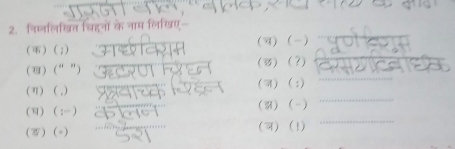 2. निम्नलिखित चिह्नों के नाम लिखिए-
(क) (;) अर्धविराम
(च) (-) पूर्ण विराम
(ख) (" ") उद्धरण चिह्न
(छ) (?) विस्मयादिबोधक
(ग) (,) प्रश्नवाचक चिह्न
(ज) (:)
(घ) (:–) कोलन
(झ) (–)
(ङ) (॰) डैश
(ञ) (।)